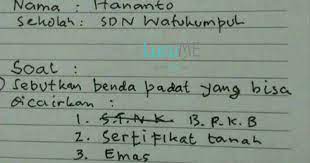 Nama : Hananto
Sekolah : SDN Watukumpul
LucuME
Soal :
Sebutkan benda padat yang bisa
dicairkan :
1. S.T.N.K B.P.K.B
2. Sertifikat tanah
3. Emas